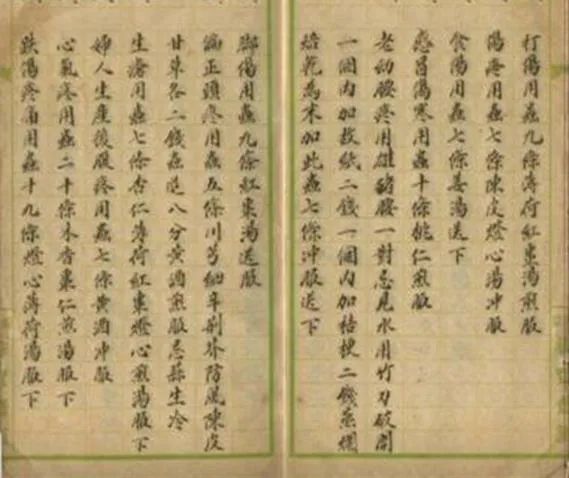 打傷用蟲九條薄荷紅棗湯煎服
傷疼用蟲七條陳皮燈心湯冲服
食傷用蟲七條姜湯送下
感冒傷寒用蟲十條桃仁煎服
老幼腰疼用雄猪腰一對忌見水用竹刀破開
一個內加故紙二錢一個內加桔梗二錢蒸爛
焙乾為末加此蟲七條冲服送下
脚傷用蟲九條紅棗湯送服
偏正頭疼用蟲五條川芎細辛荆芥防風陳皮
甘草各二錢蟲造八分黃酒煎服忌蒜生冷
生瘡用蟲七條杏仁薄荷紅棗燈心煎湯服下
婦人生產後腹疼用蟲七條黃酒冲服
心氣疼用蟲二十條木香棗仁煎湯服下
跌傷疼痛用蟲十九條燈心薄荷湯服下